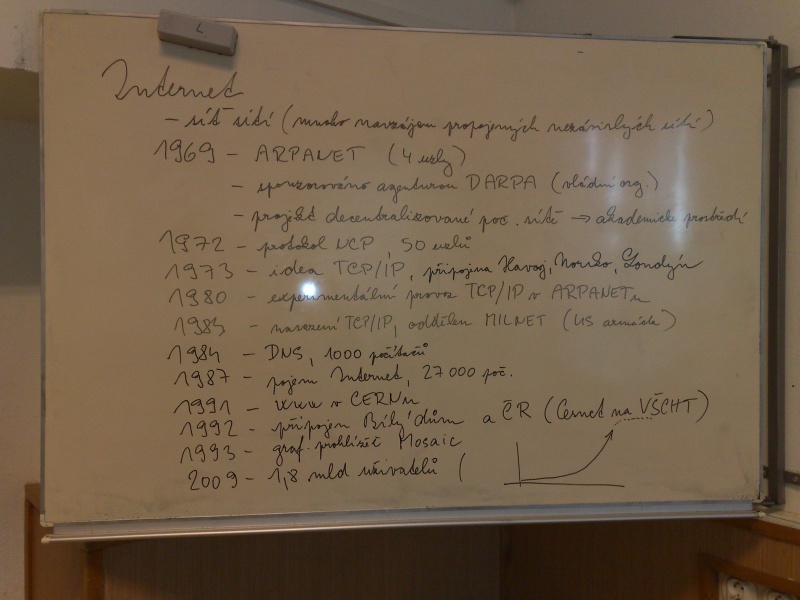 Internet
- síť sítí (mnoho navzájem propojených nezávislých sítí)
1969 - ARPANET (4 uzly)
- sponzorováno agenturou DARPA (vládní org.)
- projekt decentralizované poč. sítě → akademické prostředí
1972 - protokol NCP, 50 uzlů
1973 - idea TCP/IP, připojena Havaj, Norsko, Londýn
1980 - experimentální provoz TCP/IP v ARPANETu
1983 - nasazení TCP/IP, oddělen MILNET (US armáda)
1984 - DNS, 1000 počítačů
1987 - pojem Internet, 27 000 poč.
1991 - www v CERNu
1992 - připojen Bílý dům a ČR (Cesnet na VŠCHT)
1993 - graf. prohlížeč Mosaic
2009 - 1,8 mld uživatelů (